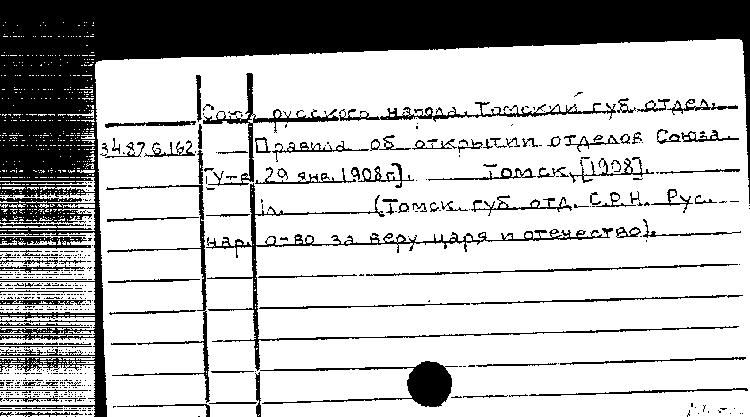 Союз русского народа. Томский губ. отдел.
34.87.6.162 Правила об открытии отделов Союза.
[Утв. 29 янв. 1908 г.]. Томск, [1908].
1 л. (Томск. губ. отд. С.Р.Н. Рус.
нар. о-во за веру царя и отечество).